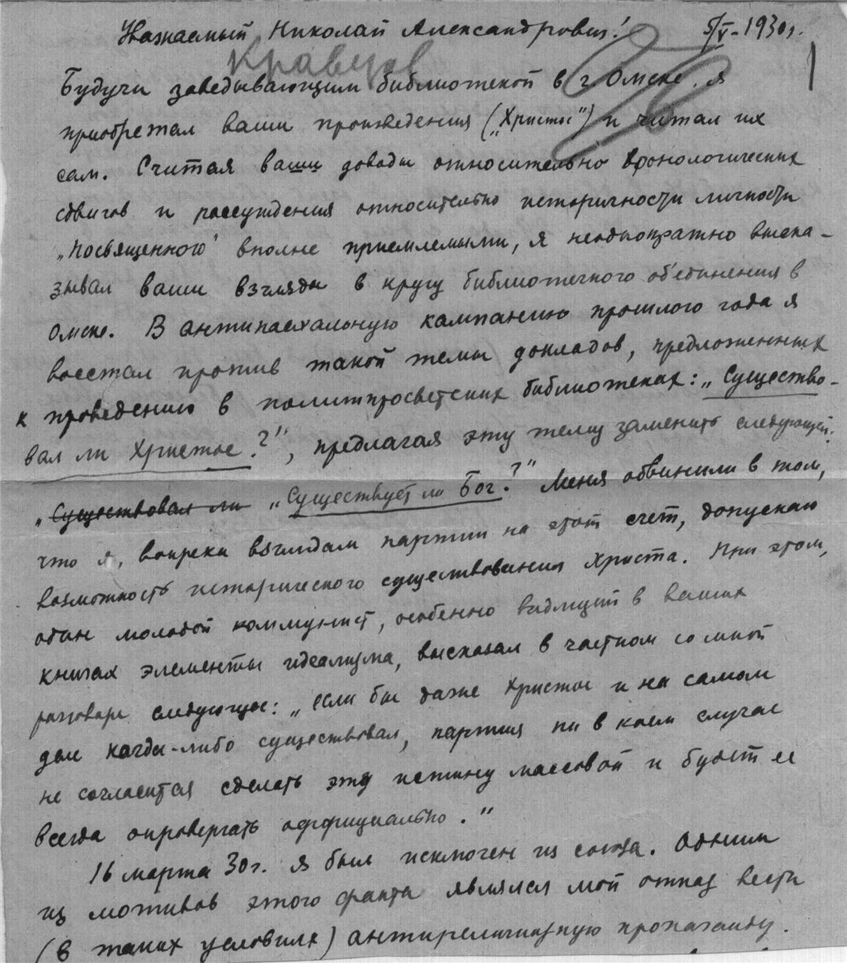 Уважаемый Николай Александрович! 5/V-1930г.
Кравцов 1
Будучи заведывающим библиотекой в г. Омске, я
приобретал ваши произведения („Христос") и читал их
сам. Считая ваши доводы относительно хронологических
сдвигов и рассуждения относительно историчности личности
„Посвященного" вполне приемлемыми, я неоднократно выска-
зывал ваши взгляды в кругу библиотечного об'единения в
Омске. В антипасхальную кампанию прошлого года я
восстал против такой темы докладов, предложенных
к проведению в политпросветских библиотеках: „Существо-
вал ли Христос?", предлагая эту тему заменить следующей:
„Существовал ли „Существует ли Бог?" Меня обвинили в том,
что я, вопреки взглядам партии на этот счет, допускаю
возможность исторического существования Христа. При этом,
один молодой коммунист, особенно видящий в ваших
книгах элементы идеализма, высказал в частном со мной
разговоре следующее: „если бы даже Христос и на самом
деле когда-либо существовал, партия ни в коем случае
не согласится сделать эту истину массовой и будет ее
всегда опровергать оффициально."
16 марта 30г. я был исключен из союза. Одним
из мотивов этого факта являлся мой отказ вести
(в таких условиях) антирелигиозную пропаганду.